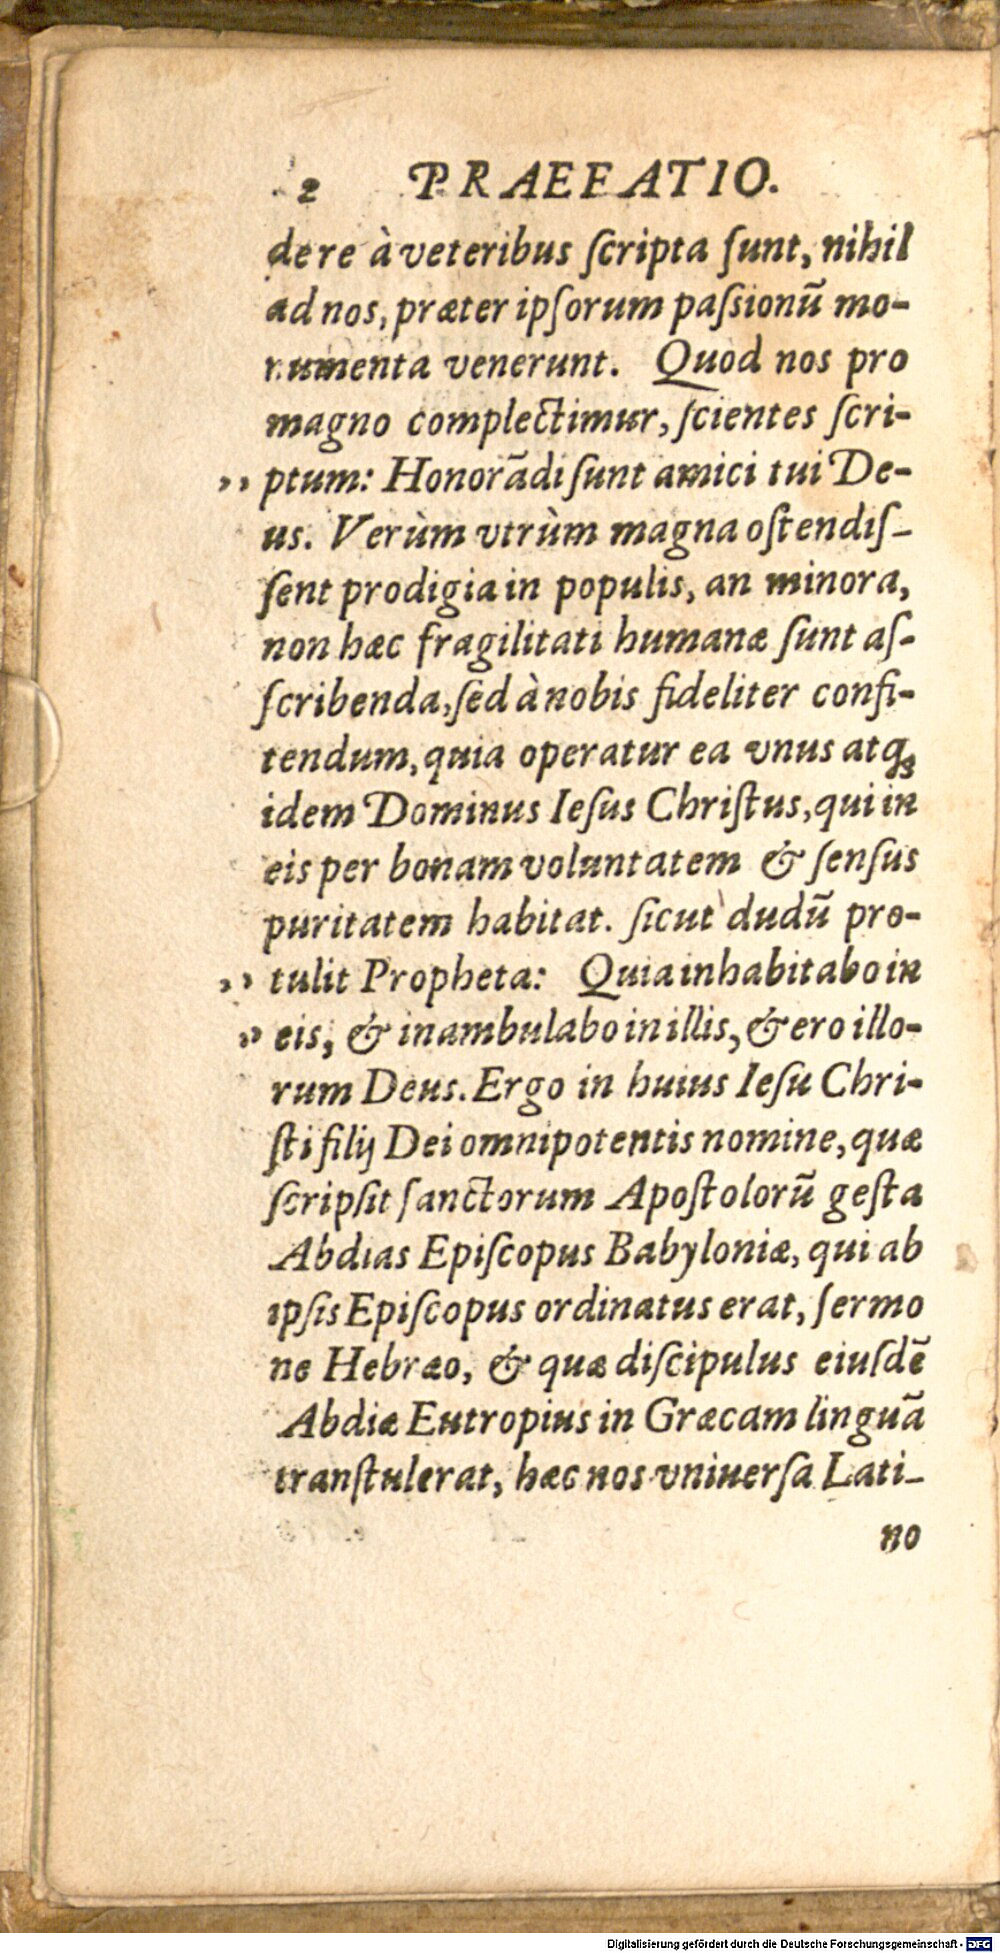 2 PRAEFATIO.
dere à veteribus ſcripta ſunt, nihil
ad nos, præter ipſorum paſsionũ mo-
numenta venerunt. Quod nos pro
magno complectimur, ſcientes ſcri-
,, ptum: Honorãdi ſunt amici tui De-
us. Verùm vtrùm magna oſtendiſ-
ſent prodigia in populis, an minora,
non hæc fragilitati humanæ ſunt aſ-
ſcribenda, ſed à nobis fideliter confi-
tendum, quia operatur ea vnus atq;
idem Dominus Ieſus Chriſtus, qui in
eis per bonam voluntatem & ſenſus
puritatem habitat. ſicut dudũ pro-
,, tulit Propheta: Quia inhabitabo in
,, eis, & inambulabo in illis, & ero illo-
rum Deus. Ergo in huius Ieſu Chri-
ſti filij Dei omnipotentis nomine, quæ
ſcripſit ſanctorum Apoſtolorũ geſta
Abdias Epiſcopus Babyloniæ, qui ab
ipſis Epiſcopus ordinatus erat, ſermo
ne Hebræo, & quæ diſcipulus eiuſdẽ
Abdiæ Eutropius in Græcam linguã
tranſtulerat, hæc nos vniuerſa Lati-
no
Digitalisierung gefördert durch die Deutsche Forschungsgemeinschaft - DFG